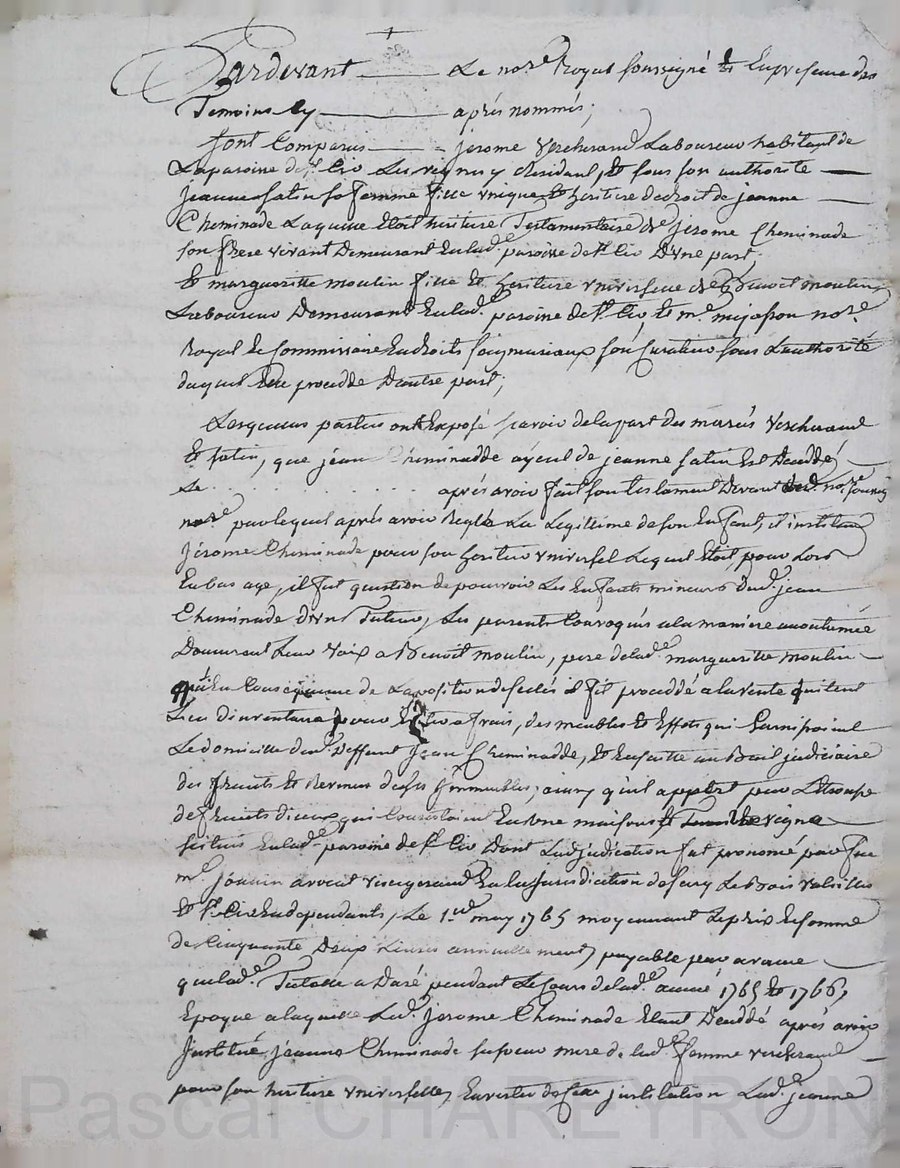 Pardevant Le no.re Royal soussigné & En presence des
Temoins cy après nommés;
font Comparus jerome Vercherand Laboureur habitant de
La paroisse de St. Cir Les vignes y residant, & sous son authorité
jeanne fatin sa femme fille unique & heritiere de droit de jeanne
Cheminade Laquelle etoit heritiere Testamentaire de jerome Cheminade
son frere vivant Demeurant En lad.e paroisse de St. Cir D'une part;
Et margueritte moulin fille Et heritiere universelle de Benoit moulin
Laboureur Demeurant En lad.e paroisse de St. Cir, & m.e no.re
Royal Et Commissaire En droits seigneuriaux son Curateur sous L'authorité
duquel Elle procedde D'autre part;
Lesquelles parties ont Exposé sçavoir de la part des mariés Vercherand
Et fatin, que jean Cheminadde ayeul de jeanne fatin Est Deceddé
Le après avoir fait son testament Devant no.re
no.re par lequel après avoir Reglé La Legittime de son Enfant, il institua
Jérome Cheminade pour son heritier universel Lequel Etoit pour Lors
En bas age, il fut question de pourvoir Les Enfants mineurs dud. jean
Cheminade d'un Tuteur, Les parents Convoqués a la maniere accoutumée
Donnerent Leur Voix a Benoit moulin, pere de lad.e margueritte moulin
qui En Consequence de La position de scelés il fit proceddé a la vente qui tient
Lieu d'inventaire pour frais, des meubles & Effets qui Garnissoient
Le domicille du Deffunt Jean Cheminadde, & Ensuitte au Bail judiciaire
des fruits & Revenus de ses Immeubles, ainsy qu'il appert par L'Etrousse
de fruits d'iceux qui Consistoient En une maison & vigne
scitués En lad.e paroisse de St. Cir Dont L'adjudication fut prononcé par feu
m.e Jouvin avocat En la Jurisdiction de Le Bois
Et St. Cir En dependants, Le 1.er may 1765 moyennant Le prix & somme
de Cinquante Deux Livres annuellement, payable par avance
que lad.e Tutelle a Duré pendant Le Cours de lad.e année 1765 & 1766,
Epoque a laquelle Led. jerome Cheminade Etant Deceddé après avoir
Institué jeanne Cheminade sa sœur mere de lad. femme Vercherand
pour son heritiere universelle, En vertu de cette institution Lad.e jeanne
Pascal CHAREYRON